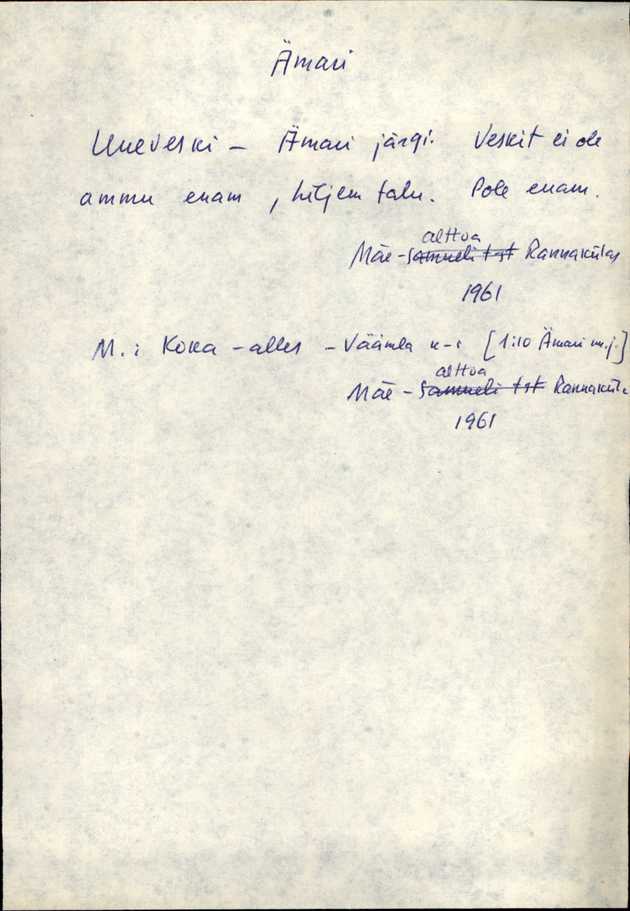 Ämari
Uueveski – Ämari järgi. Veskit ei ole
ammu enam, hiljem talu. Pole enam.
alttoa
Mäe-Samueli tst Rannakülas
1961
M.: Koka – alles – Väämla k-s [1:10 Ämari m.j.]
alttoa
Mäe-Samueli tst Rannaküla
1961